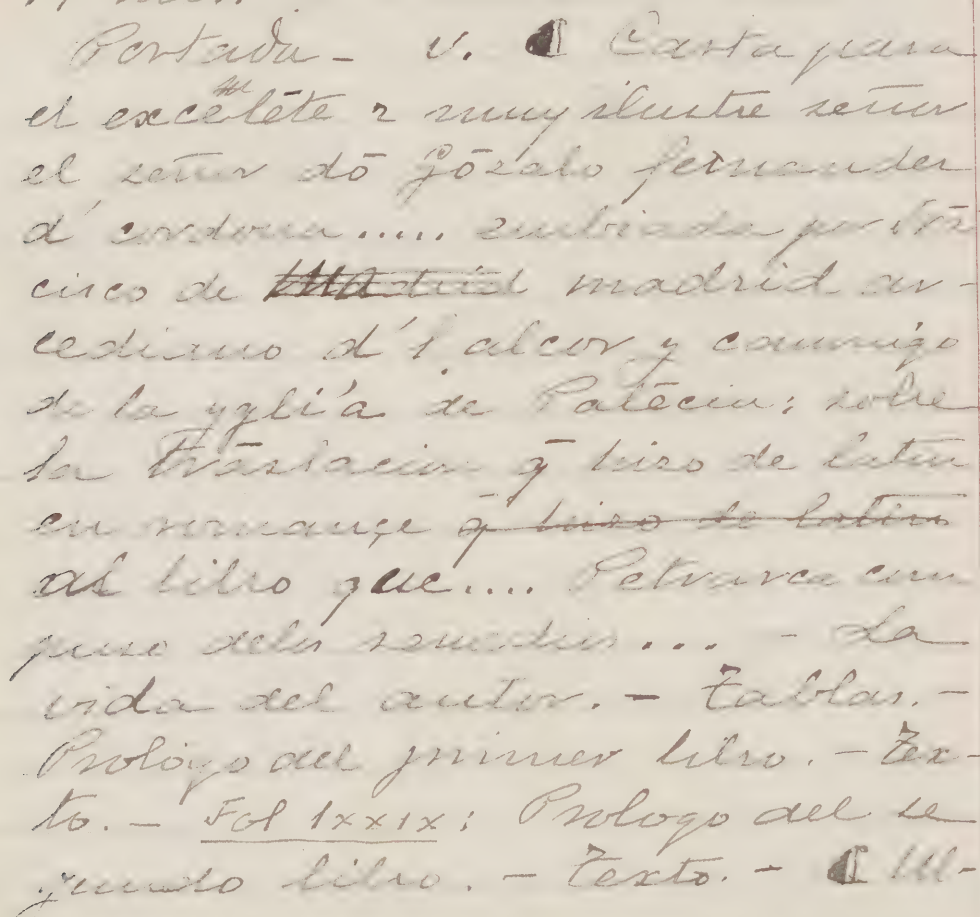 Portada — v. ¶ Carta para
el excelēte ⁊ muy ilustre señor
el señor dō gōzalo fernandez
d' cordoua..... embiada por frā
cisco de madrid ar-
cediano d'l alcor y canonigo
de la yglia de Palēcia; sobre
la trāslacion q̄ hizo de latin
en romançe q̄ hizo de latin
al libro que.... Petrarca com
puso delos remedios ... — La
vida del autor. — Tablas. —
Prologo del primer libro. — Tex-
to. — Fol lxxix: Prologo del se
gundo libro. — Texto. — ¶ Ul-